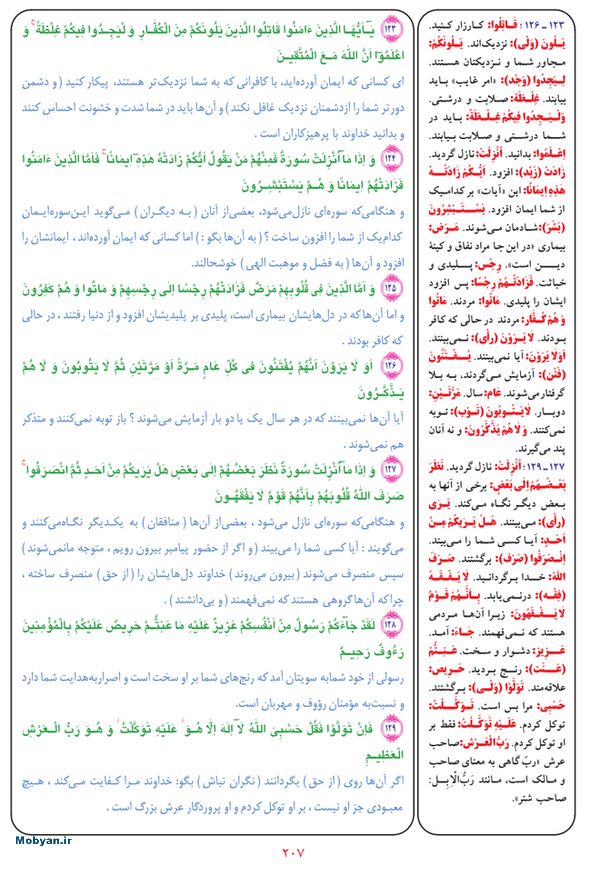 ۱۲۳ ـ ۱۲۶ : قَاتِلُوا: کارزار کنید.
یَلُونَ (وَلْی): نزدیک‌اند. یَلُونَکُمْ:
مجاور شما و نزدیکتان هستند.
لِیَجِدُوا (وَجَد): «امر غایب» باید
بیابند. غِلْظَة: صلابت و درشتی.
وَلْیَجِدُوا فِیکُمْ غِلْظَةً: باید در
شما درشتی و صلابت بیابند.
اِعْلَمُوا: بدانید. اُنْزِلَتْ: نازل گردید.
زَادَت (زَیْد): افزود. اَیُّکُمْ زَادَتْهُ
هَذِهِ اِیمَانًا: این «آیات» بر کدامیک
از شما ایمان افزود. یَسْتَبْشِرُونَ
(بَشَرَ): شادمان می‌شوند. مَرَض:
بیماری «در این جا مراد نفاق و کینهٔ
دینی است». رِجْس: پلیدی و
خباثت. فَزَادَتْهُمْ رِجْسًا: پس افزود
ایشان را پلیدی. مَاتُوا: مردند. مَاتُوا
وَ هُمْ کُفَّار: مردند در حالی که کافر
بودند. لَا یَرَوْنَ (رأی): نمی‌بینند.
اَوَلَا یَرَوْنَ: آیا نمی‌بینند. یُفْتَنُونَ
(فَتَن): آزمایش می‌گردند. به بلا
گرفتار می‌شوند. عَام: سال. مَرَّتَیْنِ:
دوبار. لَا یَتُوبُونَ (تَوْب): توبه
نمی‌کنند. وَ لَا هُمْ یَذَّکَّرُونَ: و نه آنان
پند می‌گیرند.
۱۲۷ ـ ۱۲۹ : اُنْزِلَتْ: نازل گردید. نَظَرَ
بَعْضُهُمْ اِلَی بَعْضٍ: برخی از آنها به
بعض دیگر نگاه می‌کند. یَرَی
(رأی): می‌بینند. هَلْ یَرَیکُمْ مِنْ
اَحَدٍ: آیا کسی شما را می‌بیند.
اِنْصَرَفُوا (صَرْف): برگشتند. صَرَفَ
اللهُ: خدا برگردانید. لَا یَفْقَهُ
(فِقْه): درنمی‌یابد. بِاَنَّهُمْ قَوْمٌ
لَا یَفْقَهُونَ: زیرا آن‌ها مردمی
هستند که نمی‌فهمند. جَاءَ: آمد.
عَزِیز: دشوار و سخت. عَنِتُّمْ
(عَنَت): رنج بردید. حَرِیص:
علاقه‌مند. تَوَلَّوْا (وَلْی): برگشتند.
حَسْبِی: مرا بس است. تَوَکَّلْتُ:
توکل کردم. عَلَیْهِ تَوَکَّلْتُ: فقط بر
او توکل کردم. رَبُّ الْعَرْش: صاحب
عرش «ربّ گاهی به معنای صاحب
و مالک است، مانند رَبُّ الْاِبِل:
صاحب شتر».
۱۲۳ یَآ اَیُّهَا الَّذینَ ءَامَنُوا قَاتِلُوا الَّذینَ یَلُونَکُمْ مِنَ الْکُفَّارِ وَ لْیَجِدُوا فیکُمْ غِلْظَةً ۚ وَ
اعْلَمُوٓا اَنَّ اللّٰهَ مَعَ الْمُتَّقینَ
ای کسانی که ایمان آورده‌اید، با کافرانی که به شما نزدیک‌تر هستند، پیکار کنید ( و دشمن
دورتر شما را ازدشمنان نزدیک غافل نکند ) و آن‌ها باید در شما شدت و خشونت احساس کنند
و بدانید خداوند با پرهیزکاران است .
۱۲۴ وَ اِذَا مَآ اُنْزِلَتْ سُورَةٌ فَمِنْهُمْ مَنْ یَقُولُ اَیُّکُمْ زَادَتْهُ هَذِهِ ایمَانًا ۚ فَاَمَّا الَّذینَ ءَامَنُوا
فَزَادَتْهُمْ ایمَانًا وَ هُمْ یَسْتَبْشِرُونَ
و هنگامی‌که سوره‌ای نازل‌می‌شود، بعضی‌از آنان ( به دیگران ) می‌گوید این‌سوره‌ایمان
کدام‌یک از شما را افزون ساخت ؟ ( به آن‌ها بگو : ) اما کسانی که ایمان آورده‌اند ، ایمانشان را
افزود و آن‌ها ( به فضل و موهبت الهی ) خوشحالند.
۱۲۵ وَ اَمَّا الَّذینَ فی قُلُوبِهِمْ مَرَضٌ فَزَادَتْهُمْ رِجْسًا اِلٰی رِجْسِهِمْ وَ مَاتُوا وَ هُمْ کَفِرُونَ
و اما آن‌ها که در دل‌هایشان بیماری است، پلیدی بر پلیدیشان افزود و از دنیا رفتند ، در حالی
که کافر بودند .
۱۲۶ اَوَ لَا یَرَوْنَ اَنَّهُمْ یُفْتَنُونَ فی کُلِّ عَامٍ مَرَّةً اَوْ مَرَّتَیْنِ ثُمَّ لَا یَتُوبُونَ وَ لَا هُمْ
یَذَّکَّرُونَ
آیا آن‌ها نمی‌بینند که در هر سال یک یا دو بار آزمایش می‌شوند ؟ باز توبه نمی‌کنند و متذکر
هم نمی‌شوند .
۱۲۷ وَ اِذَا مَآ اُنْزِلَتْ سُورَةٌ نَظَرَ بَعْضُهُمْ اِلٰی بَعْضٍ هَلْ یَرَیکُمْ مِنْ اَحَدٍ ثُمَّ انْصَرَفُوا ۚ
صَرَفَ اللّٰهُ قُلُوبَهُمْ بِاَنَّهُمْ قَوْمٌ لَا یَفْقَهُونَ
و هنگامی‌که سوره‌ای نازل می‌شود ، بعضی‌از آن‌ها ( منافقان ) به یکدیگر نگاه‌می‌کنند و
می‌گویند : آیا کسی شما را می‌بیند ( و اگر از حضور پیامبر بیرون رویم ، متوجه مانمی‌شوند )
سپس منصرف می‌شوند ( بیرون می‌روند ) خداوند دل‌هایشان را ( از حق ) منصرف ساخته ،
چراکه آن‌هاگروهی هستند که نمی‌فهمند ( و بی‌دانشند ) .
۱۲۸ لَقَدْ جَآءَکُمْ رَسُولٌ مِنْ اَنْفُسِکُمْ عَزیزٌ عَلَیْهِ مَا عَنِتُّمْ حَریصٌ عَلَیْکُمْ بِالْمُؤْمِنینَ
رَءُوفٌ رَحیمٌ
رسولی از خود شمابه سویتان آمد که رنج‌های شما بر او سخت است و اصراربه‌هدایت شما دارد
و نسبت‌به مؤمنان رؤوف و مهربان است .
۱۲۹ فَاِنْ تَوَلَّوْا فَقُلْ حَسْبِیَ اللّٰهُ لَآ اِلٰهَ اِلَّا هُوَ ۖ عَلَیْهِ تَوَکَّلْتُ ۖ وَ هُوَ رَبُّ الْعَرْشِ
الْعَظیمِ
اگر آن‌ها روی ( از حق ) بگردانند ( نگران نباش ) بگو: خداوند مرا کفایت می‌کند ، هیچ
معبودی جز او نیست ، بر او توکل کردم و او پروردگار عرش بزرگ است .
۲۰۷
Mobyan.ir